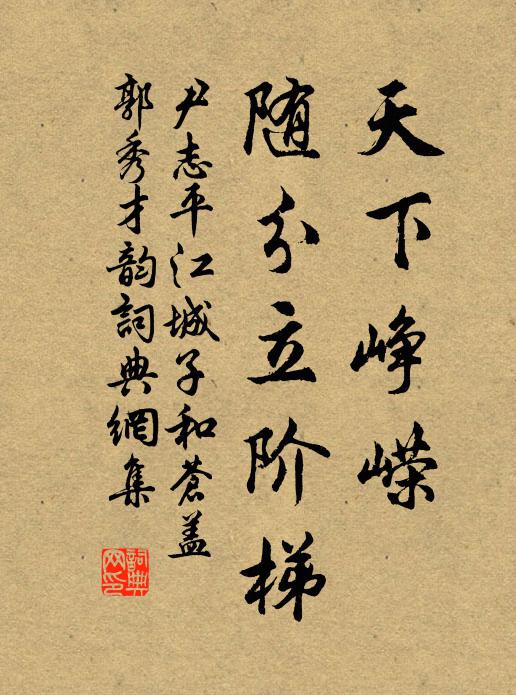 天下峥嵘
随分立阶梯
尹志平江城子和蒼盖
郭秀才韵詞典網集
詞典
网印